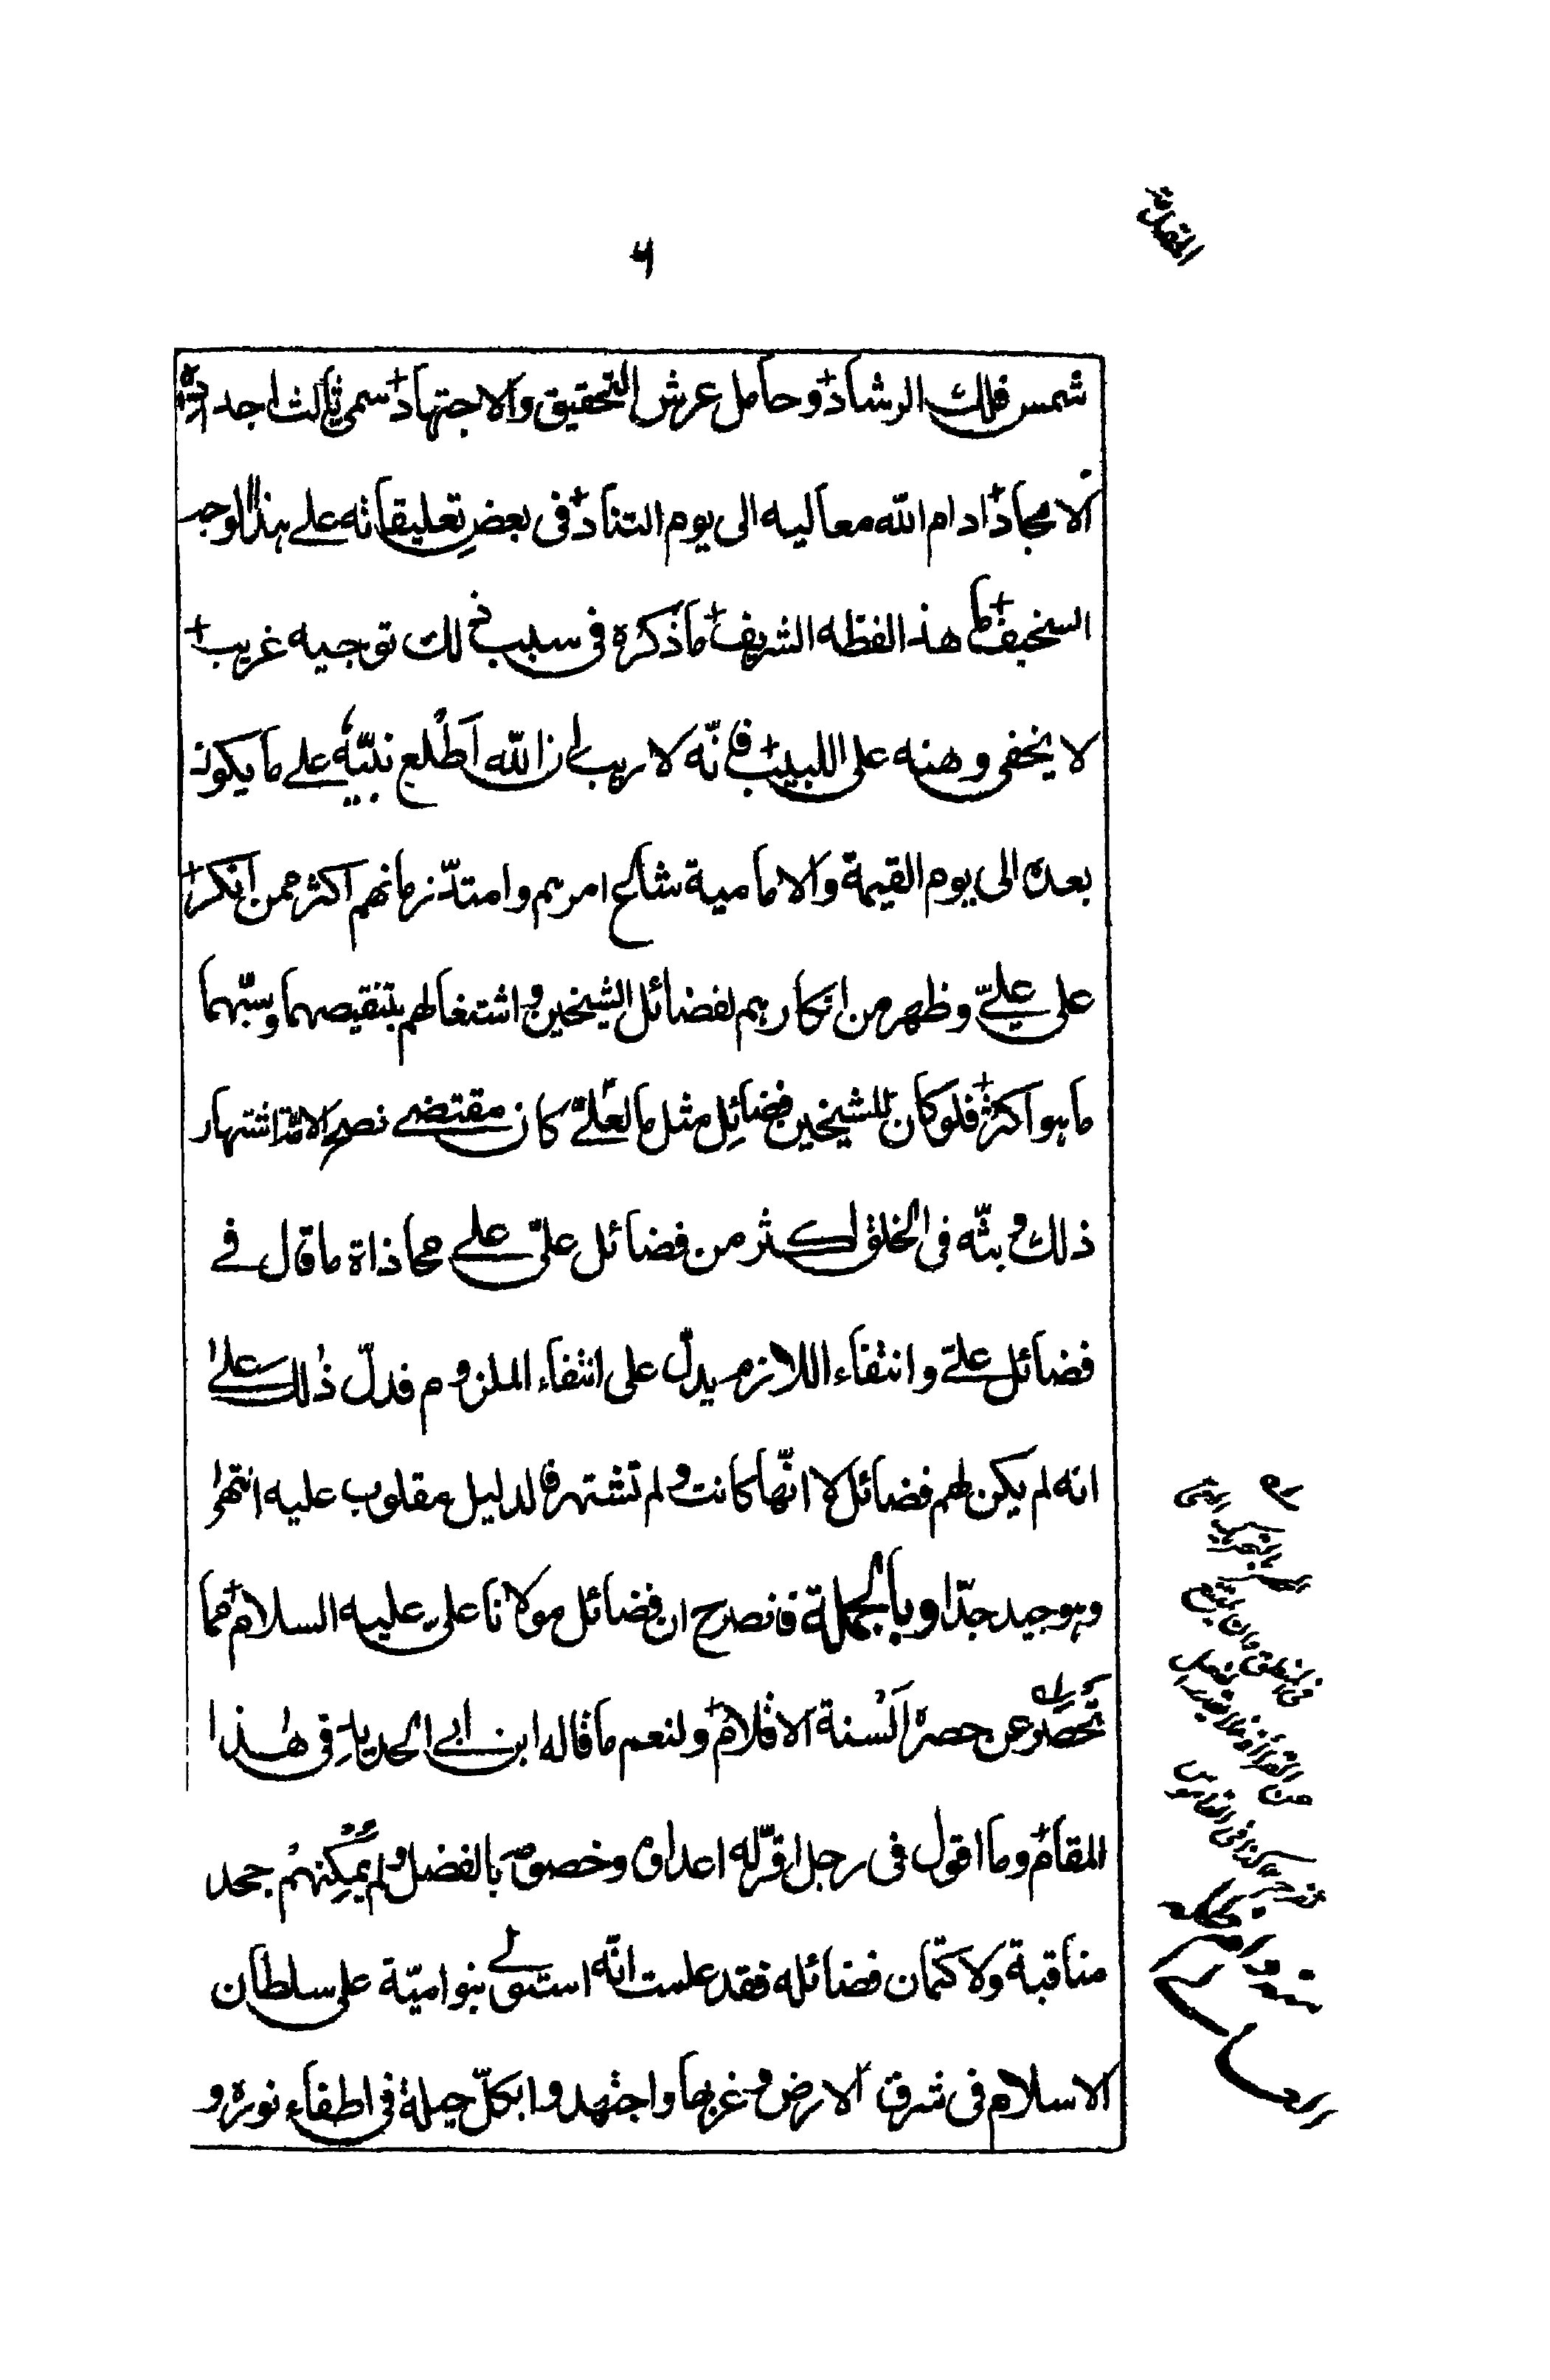 المقدمة
٦
شمس فلك الرشاد وحامل عرش التحقيق والاجتهاد سمى ثالث اجداده
الامجاد ادام الله معاليه الى يوم التناد فى بعض تعليقاته على هذا الوجه
السخيف ما هذا لفظه الشريف ما ذكره فى سبب ذلك توجيه غريب
لا يخفى وهنه على اللبيب فانّه لا ريب ان الله اَطْلع نبيّه على ما يكون
بعده الى يوم القيمة والامامية شائع امرهم وامتدّ زمانهم اكثر ممن انكر
على علىّ وظهر من انكارهم لفضائل الشيخين واشتغالهم بتنقيصهما وسبّهما
ما هو اكثر فلو كان للشيخين فضائل مثل ما لعلىّ كان مقتضى نصح الامّة اشتهار
ذلك وبثّه فى الخلق اكثر من فضائل علىّ على محاذاة ما قال فى
فضائل علىّ وانتفاء اللازم يدلّ على انتفاء الملزوم فدلّ ذلك على
انه لم يكن لهم فضائل لا انّها كانت ولم تشتهر فالدليل مقلوب عليه انتهى
وهو جيد جدّا وبالجملة فانصرح ان فضائل مولانا على عليه السلام مما
تحصر عن حصره اَلسنة الاقلام ولنعم ما قاله ابن ابى الحديد فى هذا
المقام وما اقول فى رجل اقرّ له اعداؤه وخصومه بالفضل ولم يُمكِنهُم جحد
مناقبة ولا كتمان فضائله فقد علمت انّه استولى بنو اميّة على سلطان
الاسلام فى شرق الارض وغربها واجتهدوا بكلّ حيلة فى اطفاء نوره و